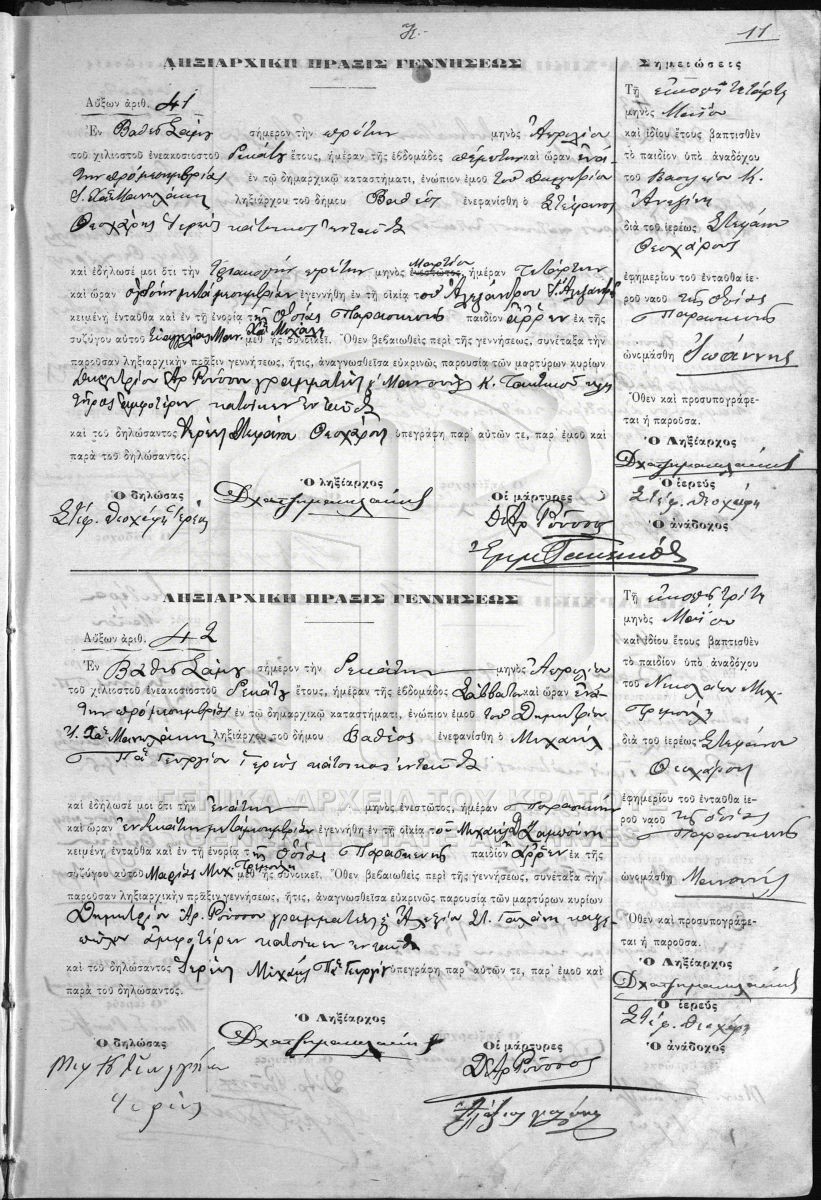 11
ΛΗΞΙΑΡΧΙΚΗ ΠΡΑΞΙΣ ΓΕΝΝΗΣΕΩΣ
Αὔξων ἀριθ. 41
Ἐν Βαθεῖ Σάμῳ σήμερον τὴν πρώτην μηνὸς Ἀπριλίου
τοῦ χιλιοστοῦ ἐνεακοσιοστοῦ δεκάτου ἔτους, ἡμέραν τῆς ἑβδομάδος πέμπτην καὶ ὥραν ἐνά-
την πρὸ μεσημβρίας ἐν τῷ δημαρχικῷ καταστήματι, ἐνώπιον ἐμοῦ τοῦ Δημητρίου
ληξιάρχου τοῦ δήμου Βαθέος ἐνεφανίσθη ὁ Στέφανος
Θεοχάρης Ἱερεὺς κάτοικος ἐνταῦθα
καὶ ἐδήλωσέ μοι ὅτι τὴν τριακοστὴν πρώτην μηνὸς ἐνεστῶτος Μαρτίου, ἡμέραν Τετάρτην
καὶ ὥραν ὀγδόην μετὰ μεσημβρίαν ἐγεννήθη ἐν τῇ οἰκίᾳ τοῦ Ἀλεξάνδρου
κειμένῃ ἐνταῦθα καὶ ἐν τῇ ἐνορίᾳ τῆς Ὁσίας Παρασκευῆς παιδίον ἄρρεν ἐκ τῆς
συζύγου αὐτοῦ Εὐαγγελίας Μαν. Χ" Μιχάλη μεθ' ἧς συνοικεῖ. Ὅθεν βεβαιωθεὶς περὶ τῆς γεννήσεως, συνέταξα τὴν
παροῦσαν ληξιαρχικὴν πρᾶξιν γεννήσεως, ἥτις, ἀναγνωσθεῖσα εὐκρινῶς παρουσίᾳ τῶν μαρτύρων κυρίων
Δημητρίου Ἀρ. Ρούσσου γραμματέως Μανουὴλ Κ.
ἀμφοτέρων κατοίκων ἐνταῦθα
καὶ τοῦ δηλώσαντος Ἱερέως Στεφάνου Θεοχάρους ὑπεγράφη παρ' αὐτῶν τε, παρ' ἐμοῦ καὶ
παρὰ τοῦ δηλώσαντος.
Ὁ δηλώσας
Στέφ. Θεοχάρης Ἱερεύς
Ὁ ληξίαρχος
Οἱ μάρτυρες
Δ Ἀρ Ρούσσος
Σημειώσεις
Τῇ εἰκοστῇ τετάρτῃ
μηνὸς Μαΐου
καὶ ἰδίου ἔτους βαπτισθὲν
τὸ παιδίον ὑπὸ ἀναδόχου
τοῦ Βασιλείου Κ.
διὰ τοῦ ἱερέως Στεφάνου
Θεοχάρους
ἐφημερίου τοῦ ἐνταῦθα ἱε-
ροῦ ναοῦ τῆς Ὁσίας
Παρασκευῆς
ὠνομάσθη Ἰωάννης
Ὅθεν καὶ προσυπογράφε-
ται ἡ παροῦσα.
Ὁ Ληξίαρχος
Ὁ ἱερεύς
Στέφ. Θεοχάρης
Ὁ ἀνάδοχος
ΛΗΞΙΑΡΧΙΚΗ ΠΡΑΞΙΣ ΓΕΝΝΗΣΕΩΣ
Αὔξων ἀριθ. 42
Ἐν Βαθεῖ Σάμῳ σήμερον τὴν δεκάτην μηνὸς Ἀπριλίου
τοῦ χιλιοστοῦ ἐνεακοσιοστοῦ δεκάτου ἔτους, ἡμέραν τῆς ἑβδομάδος Σάββατον καὶ ὥραν ἐνά-
την πρὸ μεσημβρίας ἐν τῷ δημαρχικῷ καταστήματι, ἐνώπιον ἐμοῦ τοῦ Δημητρίου
ληξιάρχου τοῦ δήμου Βαθέος ἐνεφανίσθη ὁ Μιχαὴλ
Γεωργίου Ἱερεὺς κάτοικος ἐνταῦθα
ΓΕΝΙΚΑ ΑΡΧΕΙΑ ΤΟΥ ΚΡΑΤΟΥΣ
καὶ ἐδήλωσέ μοι ὅτι τὴν ἐνάτην μηνὸς ἐνεστῶτος, ἡμέραν Παρασκευὴν
καὶ ὥραν ἑνδεκάτην μετὰ μεσημβρίαν ἐγεννήθη ἐν τῇ οἰκίᾳ τοῦ Μιχαὴλ
κειμένῃ ἐνταῦθα καὶ ἐν τῇ ἐνορίᾳ τῆς Ὁσίας Παρασκευῆς παιδίον ἄρρεν ἐκ τῆς
συζύγου αὐτοῦ Μαρίας Μιχ. μεθ' ἧς συνοικεῖ. Ὅθεν βεβαιωθεὶς περὶ τῆς γεννήσεως, συνέταξα τὴν
παροῦσαν ληξιαρχικὴν πρᾶξιν γεννήσεως, ἥτις, ἀναγνωσθεῖσα εὐκρινῶς παρουσίᾳ τῶν μαρτύρων κυρίων
Δημητρίου Ἀρ. Ρούσσου γραμματέως Ἀλεξίου
ἀμφοτέρων κατοίκων ἐνταῦθα
καὶ τοῦ δηλώσαντος Ἱερέως Μιχαὴλ ὑπεγράφη παρ' αὐτῶν τε, παρ' ἐμοῦ καὶ
παρὰ τοῦ δηλώσαντος.
Ὁ δηλώσας
Ἱερεύς
Ὁ Ληξίαρχος
Οἱ μάρτυρες
Δ Ἀρ Ρούσσος
Τῇ εἰκοστῇ τρίτῃ
μηνὸς Μαΐου
καὶ ἰδίου ἔτους βαπτισθὲν
τὸ παιδίον ὑπὸ ἀναδόχου
τοῦ Νικολάου Μιχ.
διὰ τοῦ ἱερέως Στεφάνου
Θεοχάρους
ἐφημερίου τοῦ ἐνταῦθα ἱε-
ροῦ ναοῦ τῆς Ὁσίας
Παρασκευῆς
ὠνομάσθη
Ὅθεν καὶ προσυπογράφε-
ται ἡ παροῦσα.
Ὁ Ληξίαρχος
Ὁ ἱερεύς
Στέφ. Θεοχάρης
Ὁ ἀνάδοχος